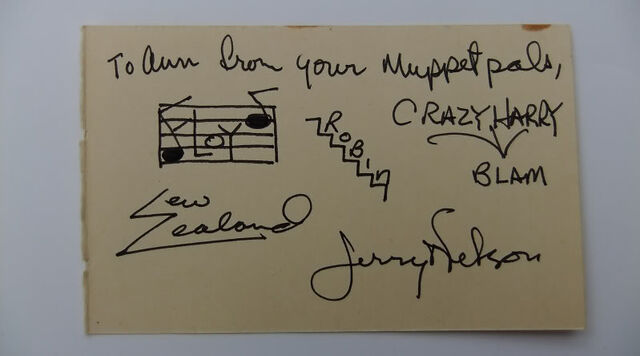 To Ann from your Muppet pals,
CRAZY HARRY
FLOYD
ROBIN
BLAM
Lew
Zealand
Jerry Nelson